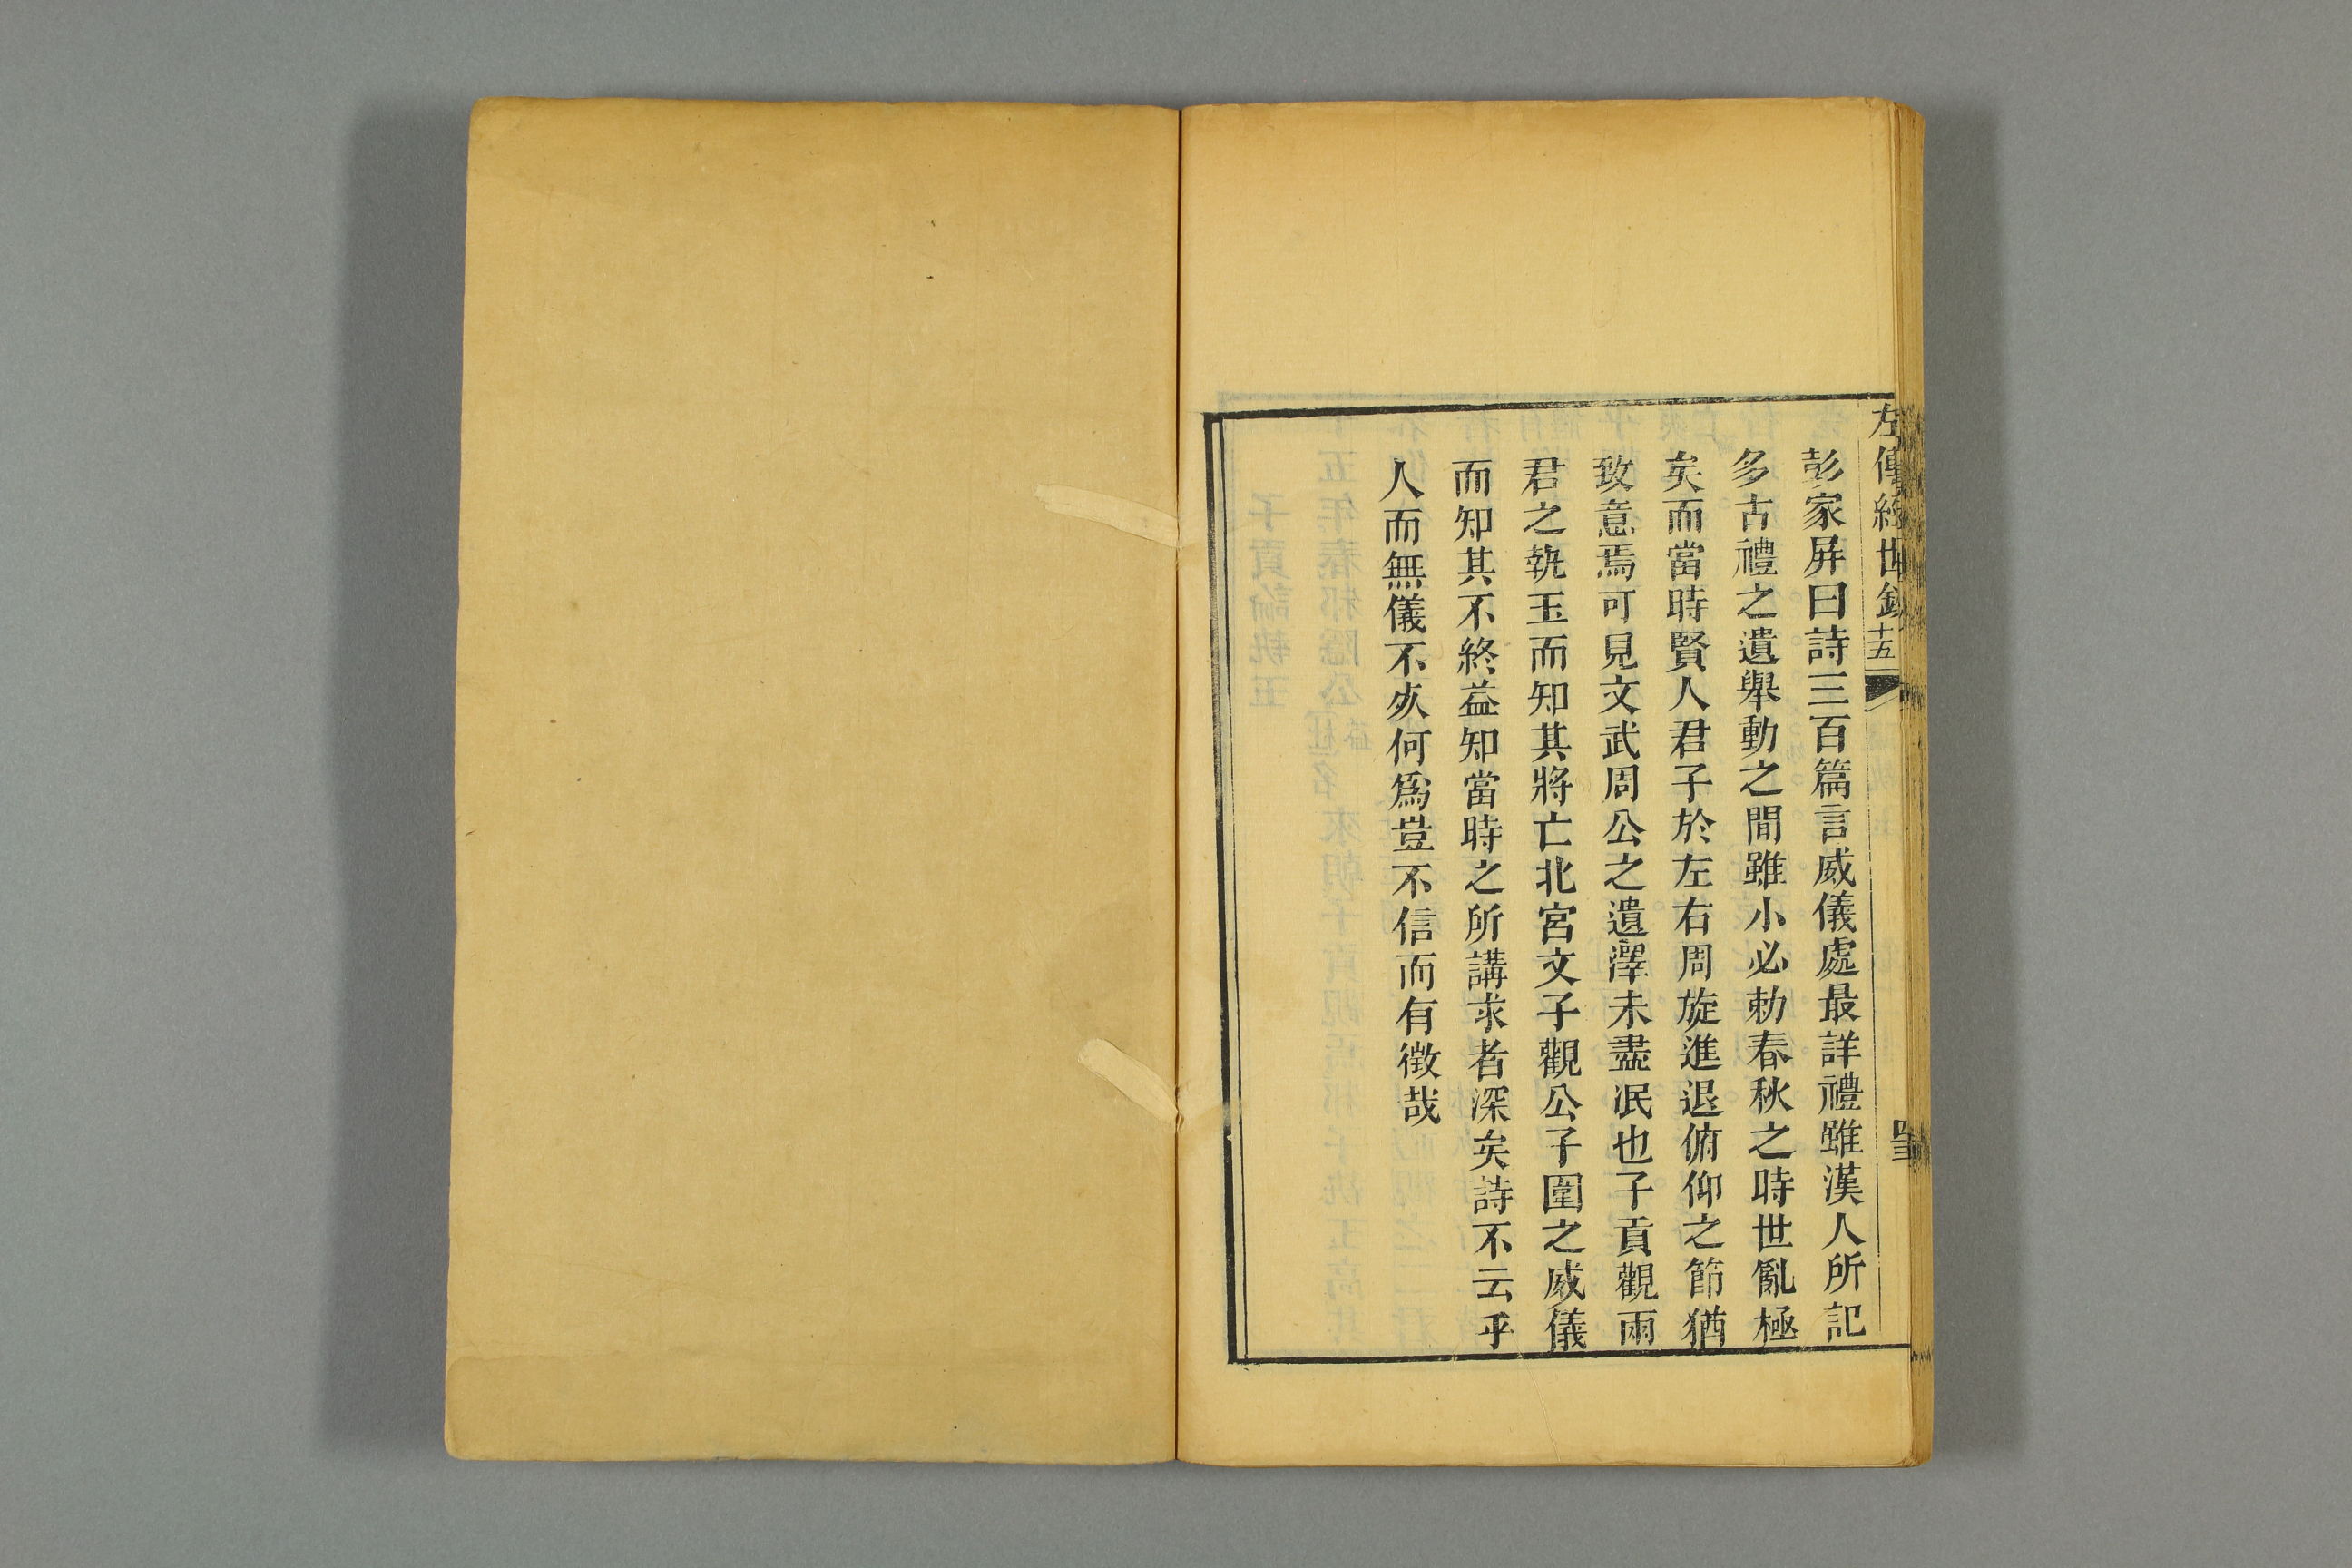 左傳經世鈔 十五
彭家屏曰詩三百篇言威儀處最詳禮雖漢人所記
多古禮之遺舉動之間雖小必勅春秋之時世亂極
矣而當時賢人君子於左右周旋進退俯仰之節猶
致意焉可見文武周公之遺澤未盡泯也子貢觀兩
君之執玉而知其將亡北宮文子觀公子圍之威儀
而知其不終益知當時之所講求者深矣詩不云乎
人而無儀不㱙何爲豈不信而有徵哉